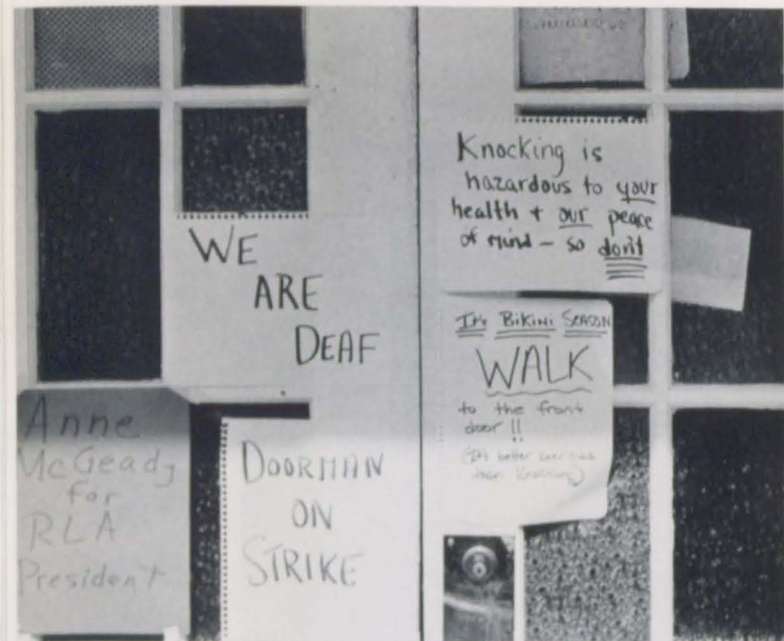 WE
ARE
DEAF
Anne
McGeady
for
RLA
President
DOORMAN
ON
STRIKE
Knocking is
hazardous to your
health + our peace
of mind – so don't
It's BIKINI SEASON
WALK
to the front
door !!
(It's better exercise
than Knocking)